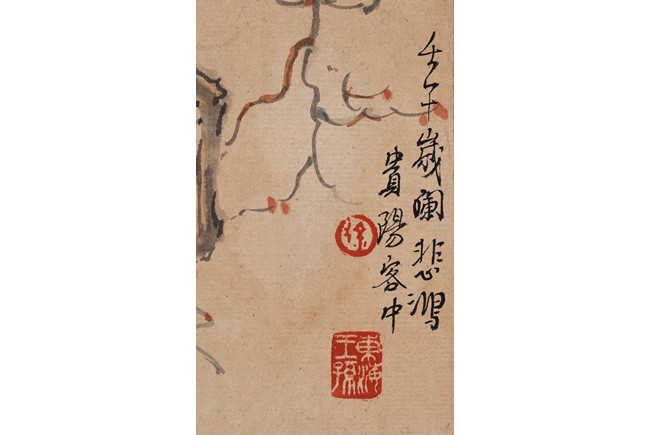 壬午歲闌悲鴻
貴陽客中
徐
東海王孫